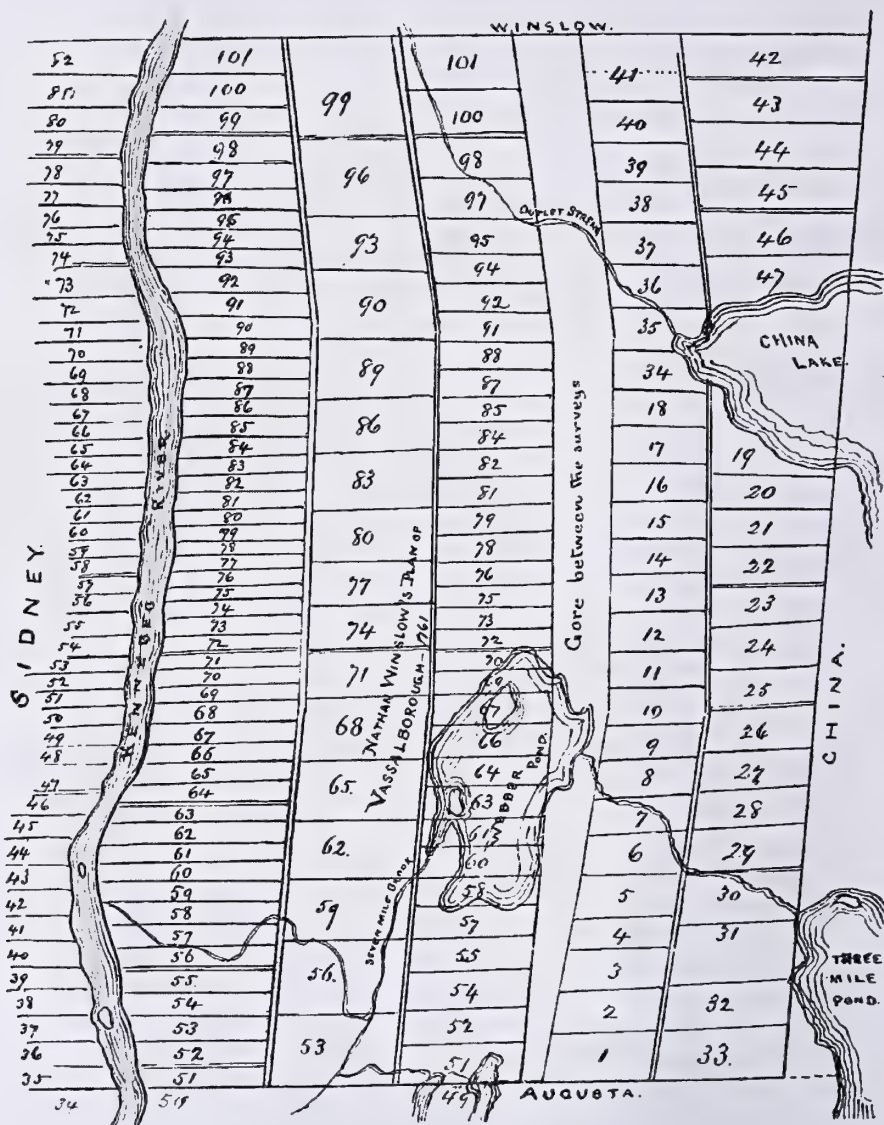 WINSLOW.
82
81
80
79
78
77
76
75
74
73
72
71
70
69
68
67
66
65
64
63
62
61
60
59
58
57
56
55
54
53
52
51
50
49
48
47
46
45
44
43
42
41
40
39
38
37
36
35
34
SIDNEY.
KENNEBEC RIVER
101
100
99
98
97
96
95
94
93
92
91
90
89
88
87
86
85
84
83
82
81
80
79
78
77
76
75
74
73
72
71
70
69
68
67
66
65
64
63
62
61
60
59
58
57
56
55
54
53
52
51
50
99
96
93
90
89
86
83
80
77
74
71
68
65.
62.
59
56.
53
NATHAN WINSLOW'S PLAN OF
VASSALBOROUGH—1761
SEVEN MILE BROOK
101
100
98
97
95
94
92
91
88
87
85
84
82
81
79
78
76
75
73
72
70
69
67
66
64
63
61
60
58
57
55
54
52
51
49
WEBBER POND.
OUTLET STREAM
Gore between the surveys
41
40
39
38
37
36
35
34
18
17
16
15
14
13
12
11
10
9
8
7
6
5
4
3
2
1
42
43
44
45
46
47
CHINA
LAKE.
19
20
21
22
23
24
25
26
27
28
29
30
31
32
33.
CHINA.
THREE
MILE
POND.
AUGUSTA.